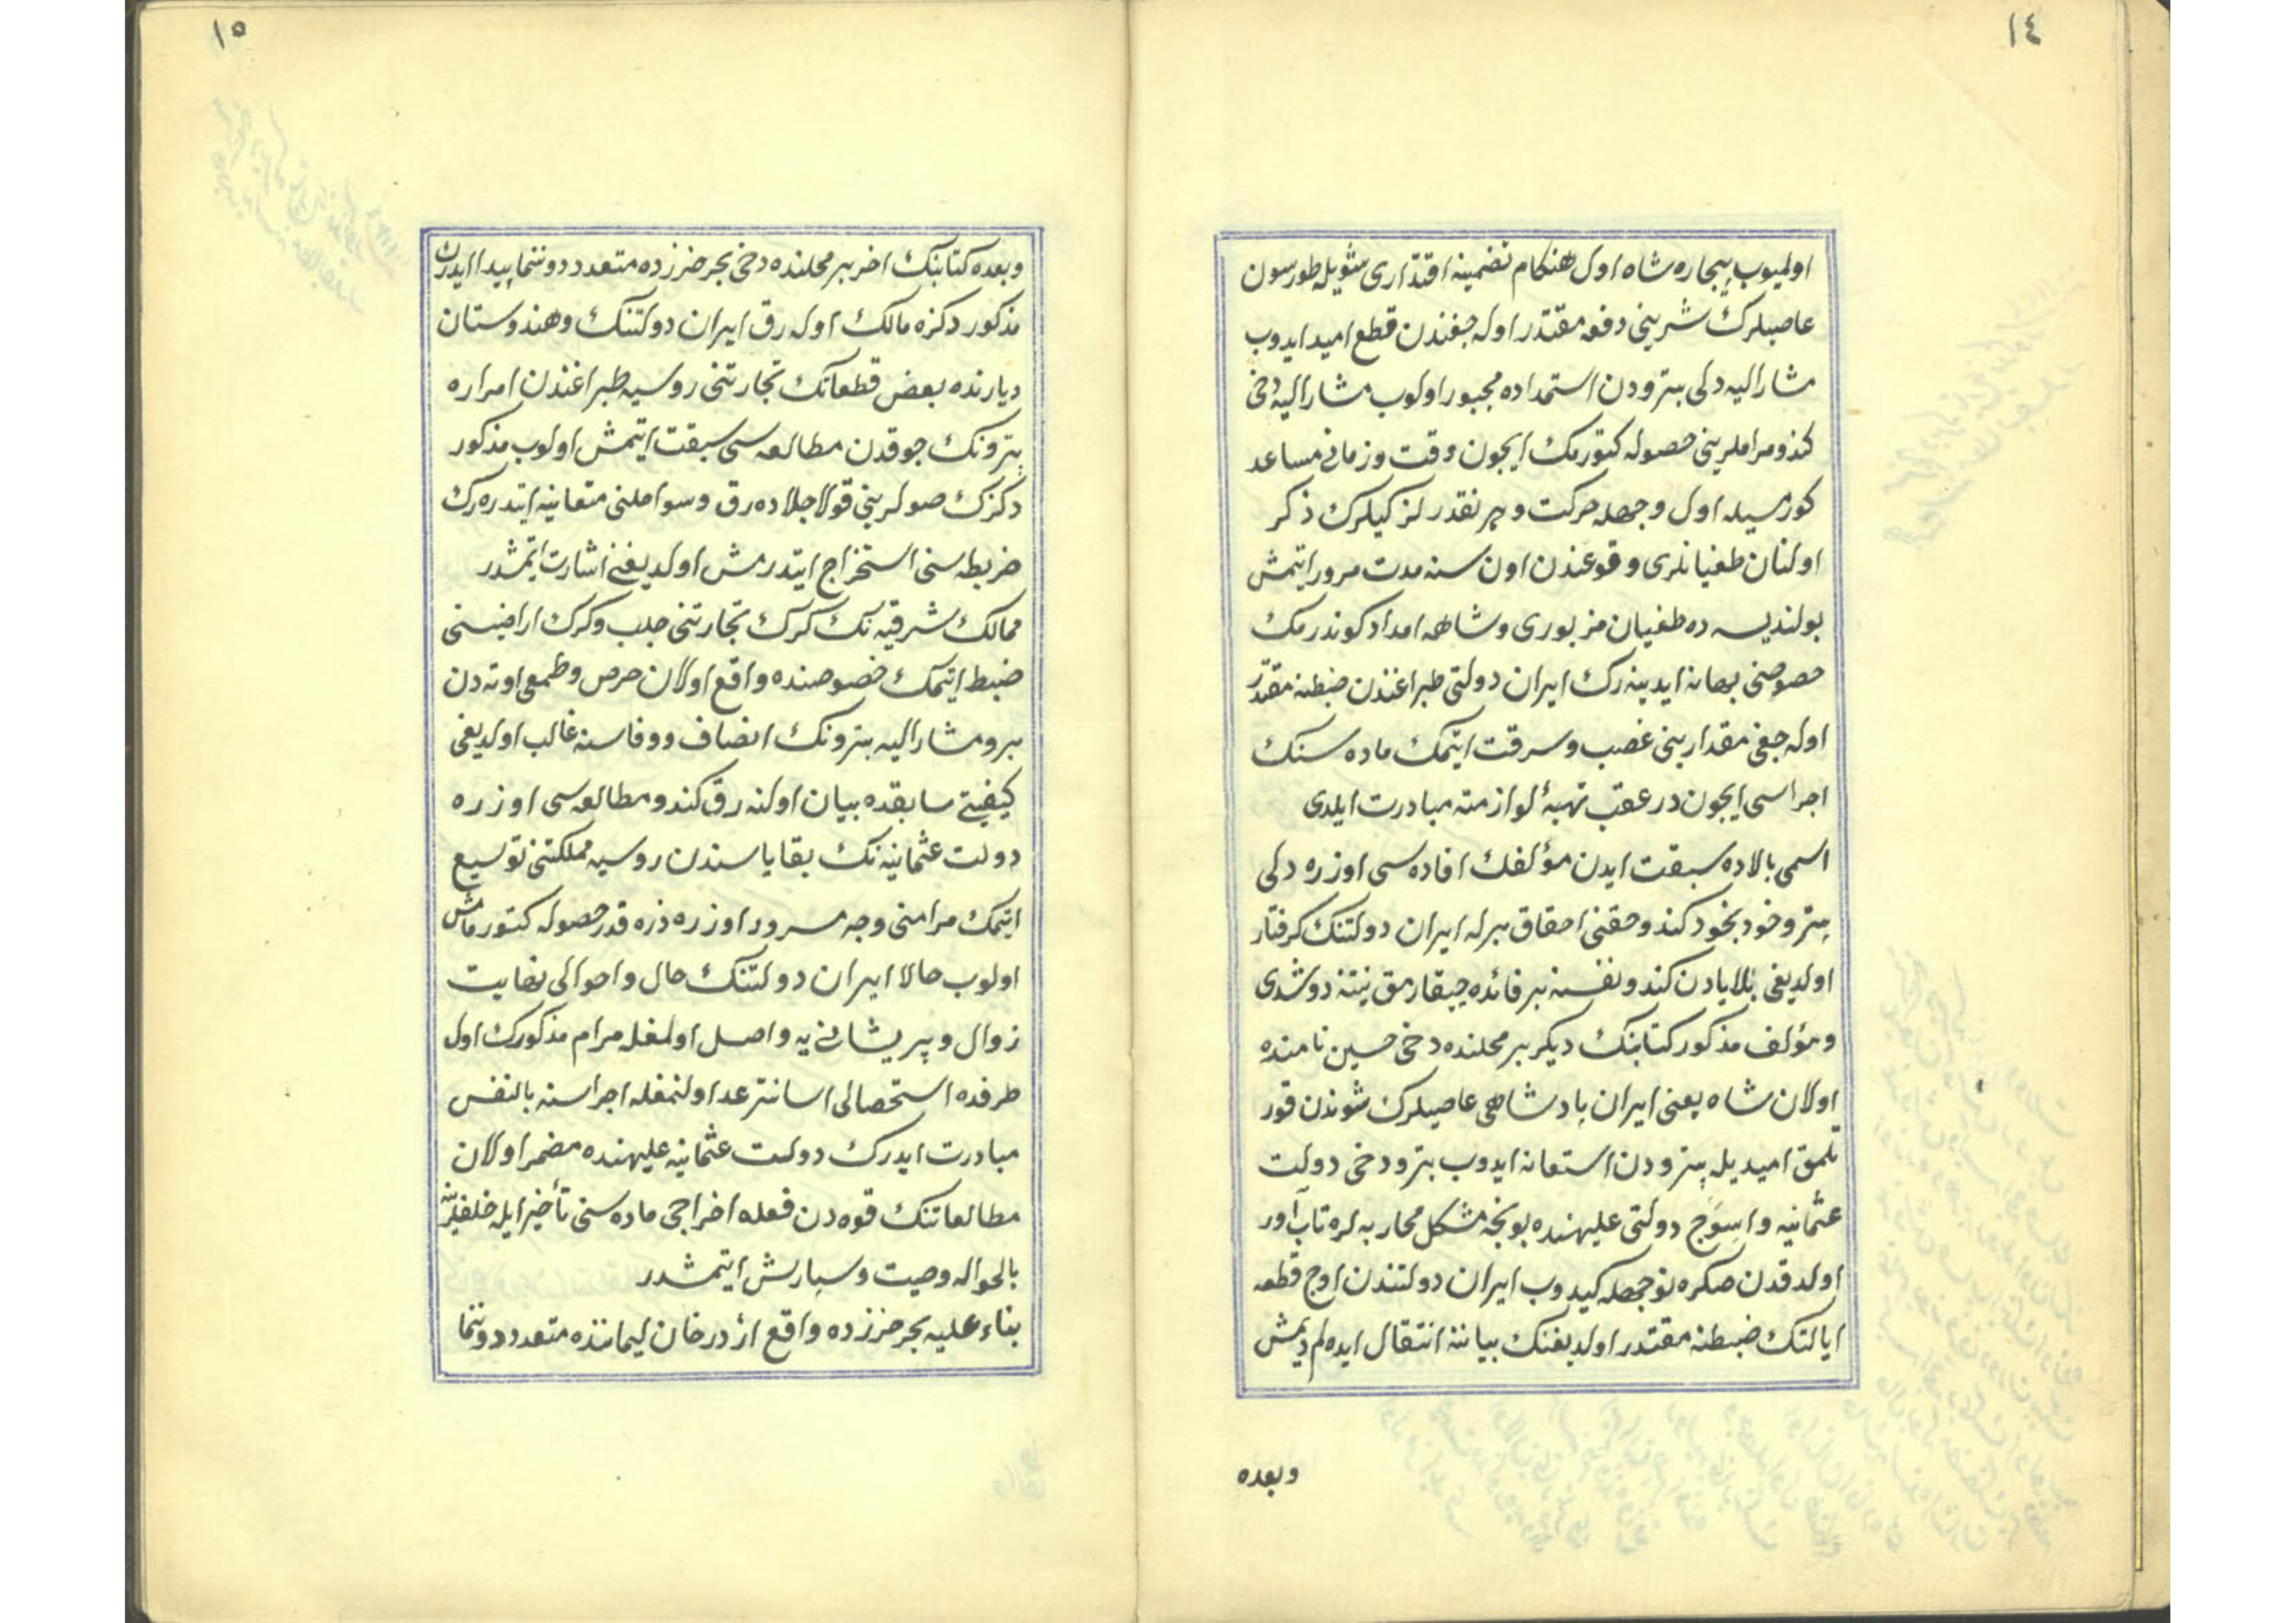 ١٤
اولميوب بيچاره شاه اول هنكام تضمينه اقتداری شويله طورسون
عاصيلرك شرينی دفعه مقتدر اوله جغندن قطع اميد ايدوب
مشار اليه دلی پترودن استمداده مجبور اولوب مشار اليه دخی
كندو مراملرينی حصوله كتورمك ايچون وقت و زمانی مساعد
كورمسيله اول وجهله حركت و هر نقدر لزكيلرك ذكر
اولنان طغيانلری وقوعندن اون سنه مدت مرور ايتمش
بولنديسه ده طغيان مزبوری و شاهه امداد كوندرمك
خصوصنی بهانه ايدينه رك ايران دولتی طپراغندن ضبطنه مقتدر
اوله جغی مقدارينی غصب و سرقت ايتمك ماده سنك
اجراسی ايچون در عقب تهيۀ لوازمنه مبادرت ايلدی
اسمی بالاده سبقت ايدن مؤلفك افاده سی اوزره دلی
پترو خود بخود كندو حقنی احقاق برله ايران دولتنك كرفتار
اولديغی بلايادن كندو نفسنه بر فائده چيقارمق نيتنه دوشدی
و مؤلف مذكور كتابنك ديكر بر محلنده دخی حسين نامنده
اولان شاه يعنی ايران پادشاهی عاصيلرك شوندن قور
تلمق اميديله پترودن استعانه ايدوب پترو دخی دولت
عثمانيه و اسوج دولتی عليهنده بونجه مشكل محاربه لره تاب آور
اولدقدن صكره توجهله كيدوب ايران دولتندن اوچ قطعه
ايالتك ضبطنه مقتدر اولديغنك بياننه انتقال ايده لم ديمش
وبعده
١٥
وبعده كتابنك اخر بر محلنده دخی بحر خزرده متعدد دوننما پيدا ايدرك
مذكور دكزه مالك اوله رق ايران دولتنك و هندوستان
ديارنده بعض قطعاتك تجارتنی روسيه طپراغندن امراره
پترونك چوقدن مطالعه سی سبقت ايتمش اولوب مذكور
دكزك صولرينی قولاجلاده رق و سواحلنی معاينه ايتدره رك
خريطه سنی استخراج ايتدرمش اولديغنی اشارت ايتمشدر
ممالك شرقيه نك كرك تجارتنی جلب و كرك اراضيسنی
ضبط ايتمك خصوصنده واقع اولان حرص و طمعی اوته دن
برو مشار اليه پترونك انصاف و وفاسنه غالب اولديغی
كيفيتی سابقده بيان اولنه رق كندو مطالعه سی اوزره
دولت عثمانيه نك بقاياسندن روسيه مملكتنی توسيع
ايتمك مرامنی وجه مسرود اوزره ذره قدر حصوله كتورمامش
اولوب حالا ايران دولتنك حال و احوالی نهايت
زوال و پريشانی يه واصل اولمغله مرام مذكورك اول
طرفده استحصالی اسانتر عد اولنمغله اجراسنه بالنفس
مبادرت ايدرك دولت عثمانيه عليهنده مضمر اولان
مطالعاتنك قوه دن فعله اخراجی ماده سنی تأخير ايله خلفلرينه
بالحواله وصيت و سپارش ايتمشدر
بناء عليه بحر خزرده واقع اژدرخان ليماننده متعدد دوننما